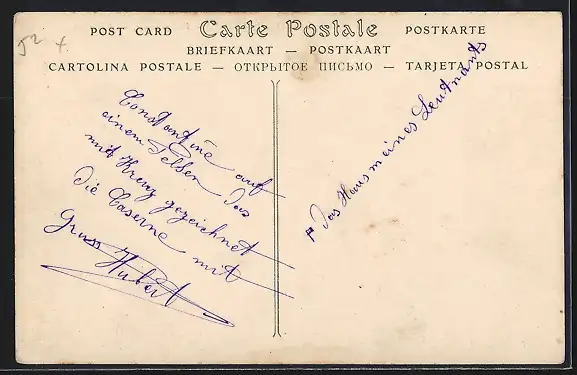 52 x
POST CARD Carte Postale POSTKARTE
BRIEFKAART — POSTKAART
CARTOLINA POSTALE — ОТКРЫТОЕ ПИСЬМО — TARJETA POSTAL
Constantine auf
einem Felsen das
mit Kreuz gezeichnet
die Caserne mit
Gruss
Hubert
Das Haus meines Leutnants